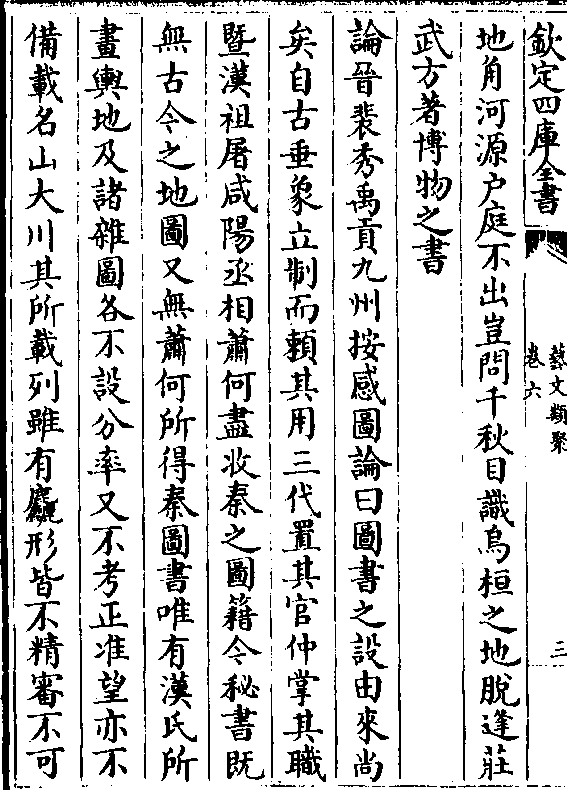 欽定四庫全書
藝文類聚
卷六
三
地角河源户庭不出豈問千秋目識烏桓之地脫逢莊
武方著博物之書
論晉裴秀禹貢九州按感圖論曰圖書之設由來尚
矣自古垂象立制而頼其用三代置其官仲掌其職
暨漢祖屠咸陽丞相蕭何盡收秦之圖籍今秘書既
無古今之地圖又無蕭何所得秦圖書唯有漢氏所
畫輿地及諸雜圖各不設分率又不考正准望亦不
備載名山大川其所載列雖有麤形皆不精審不可